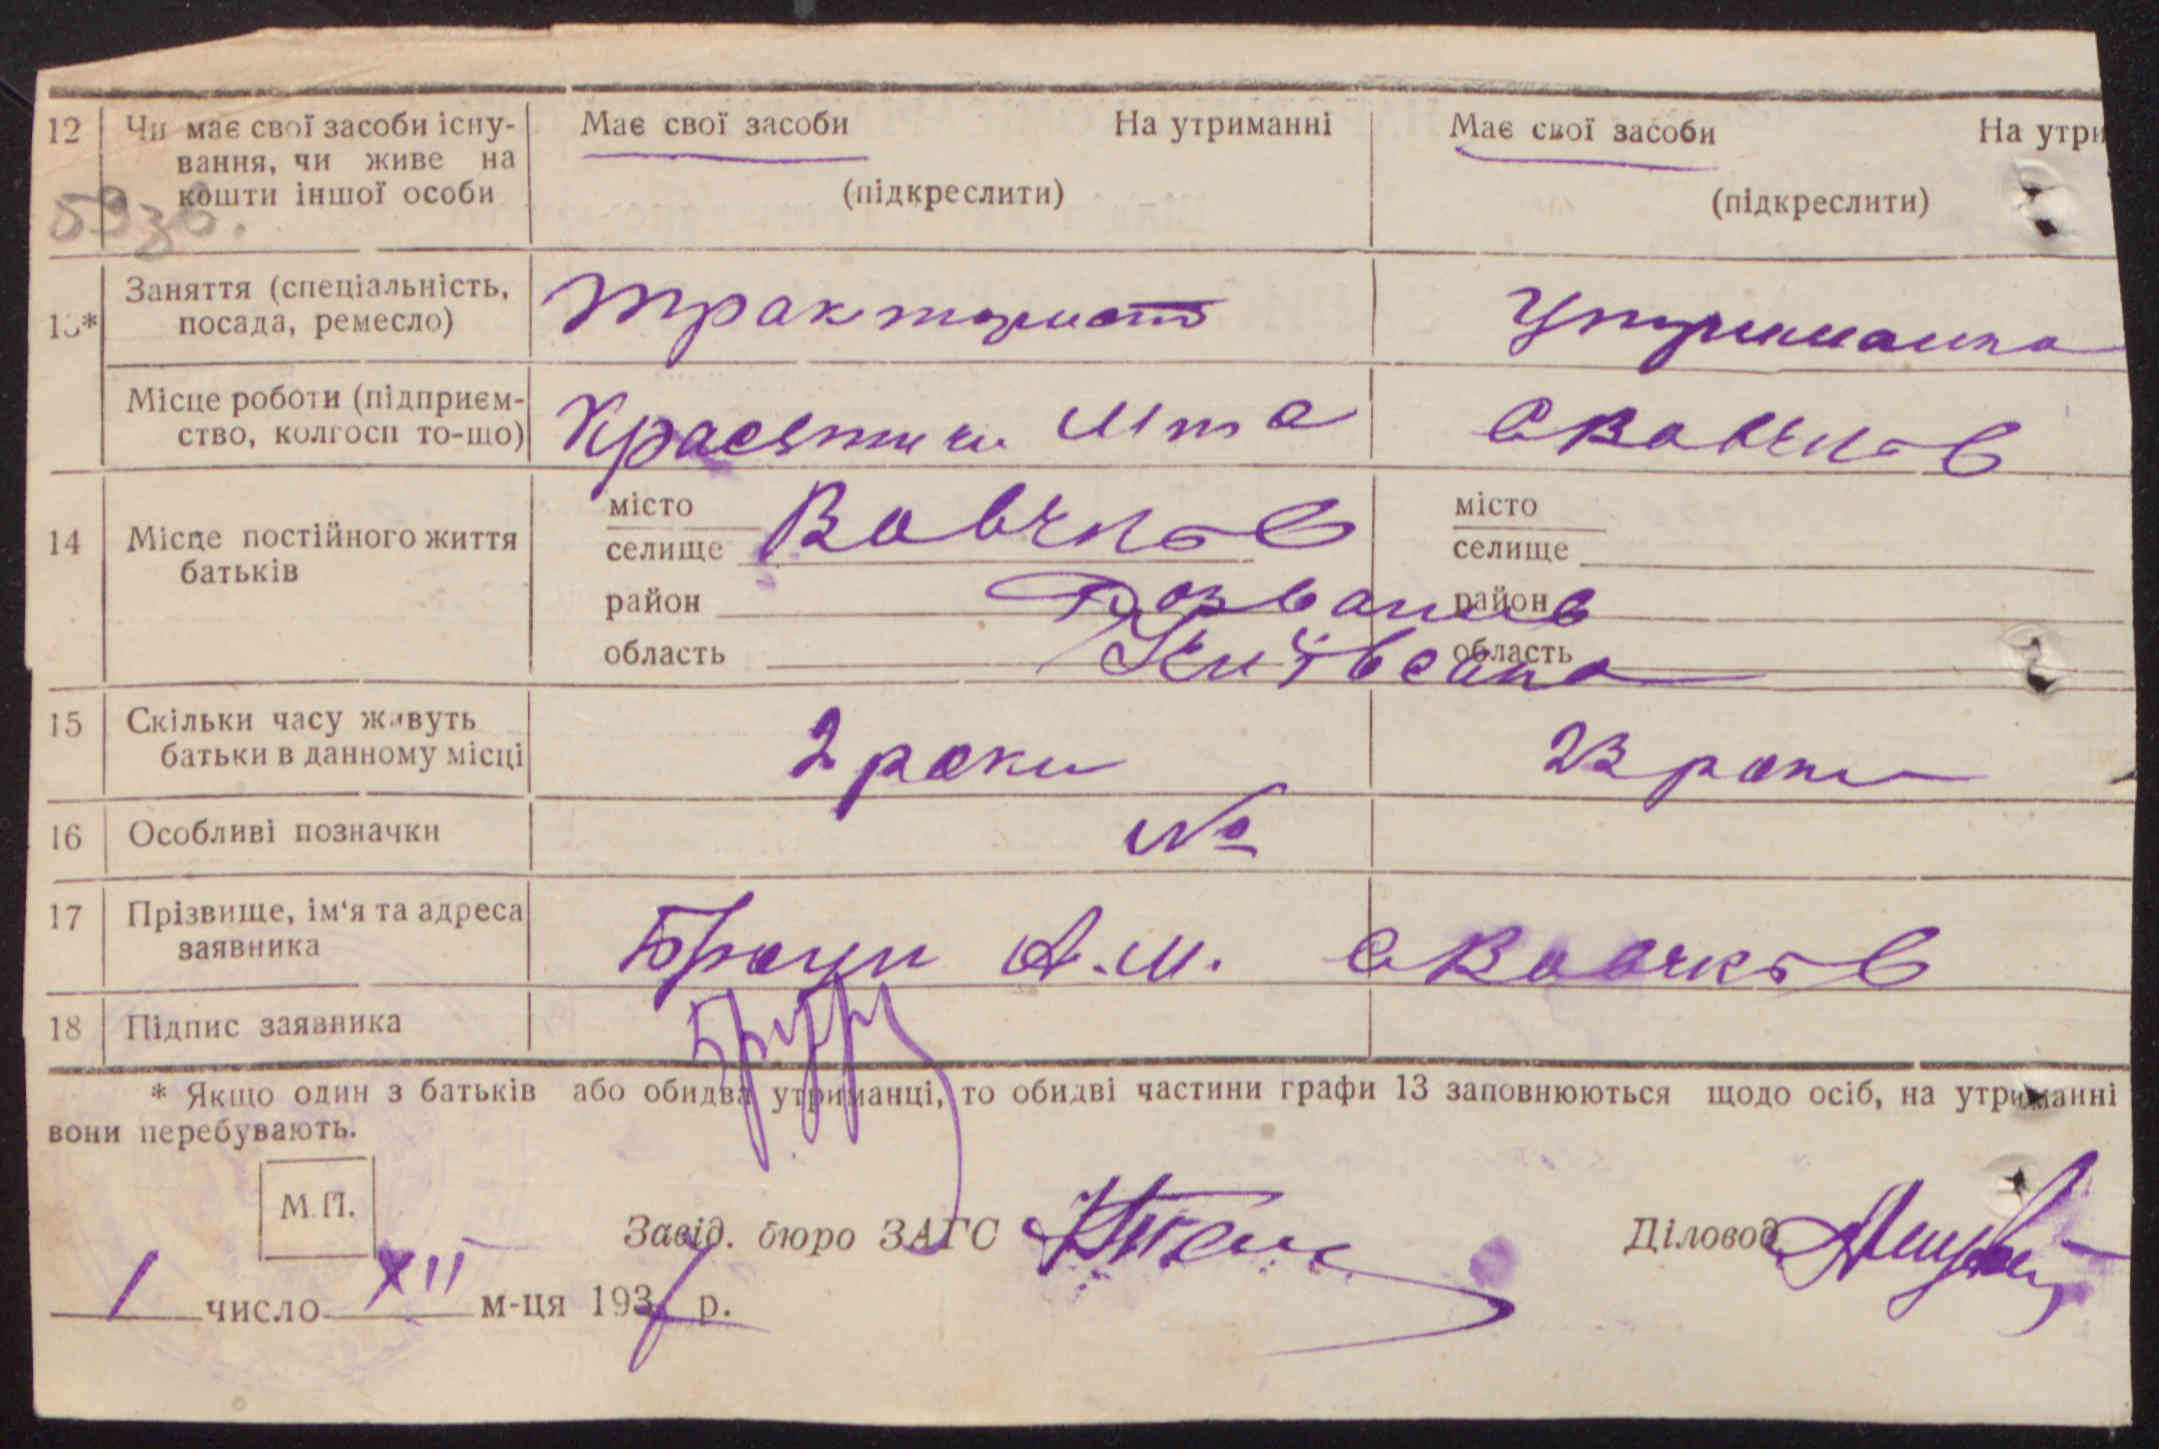 12 Чи має свої засоби існу- Має свої засоби На утриманні Має свої засоби На утри
вання, чи живе на
кошти іншої особи (підкреслити) (підкреслити)
593в.
13* Заняття (спеціальність, Тракторист Утриманка
посада, ремесло)
Місце роботи (підприєм- Мтс с Вовчків
ство, колгосп то-що)
14 Місце постійного життя місто Вовчків місто
батьків селище селище
район район
область Київська область
15 Скільки часу живуть 2 роки 23 роки
батьки в данному місці
16 Особливі позначки №
17 Прізвище, ім'я та адреса А.М. с Вовчків
заявника
18 Підпис заявника
* Якщо один з батьків або обидва утриманці, то обидві частини графи 13 заповнюються щодо осіб, на утриманні
вони перебувають.
М.П.
Завід. бюро ЗАГС Діловод
1 число XII м-ця 1937 р.